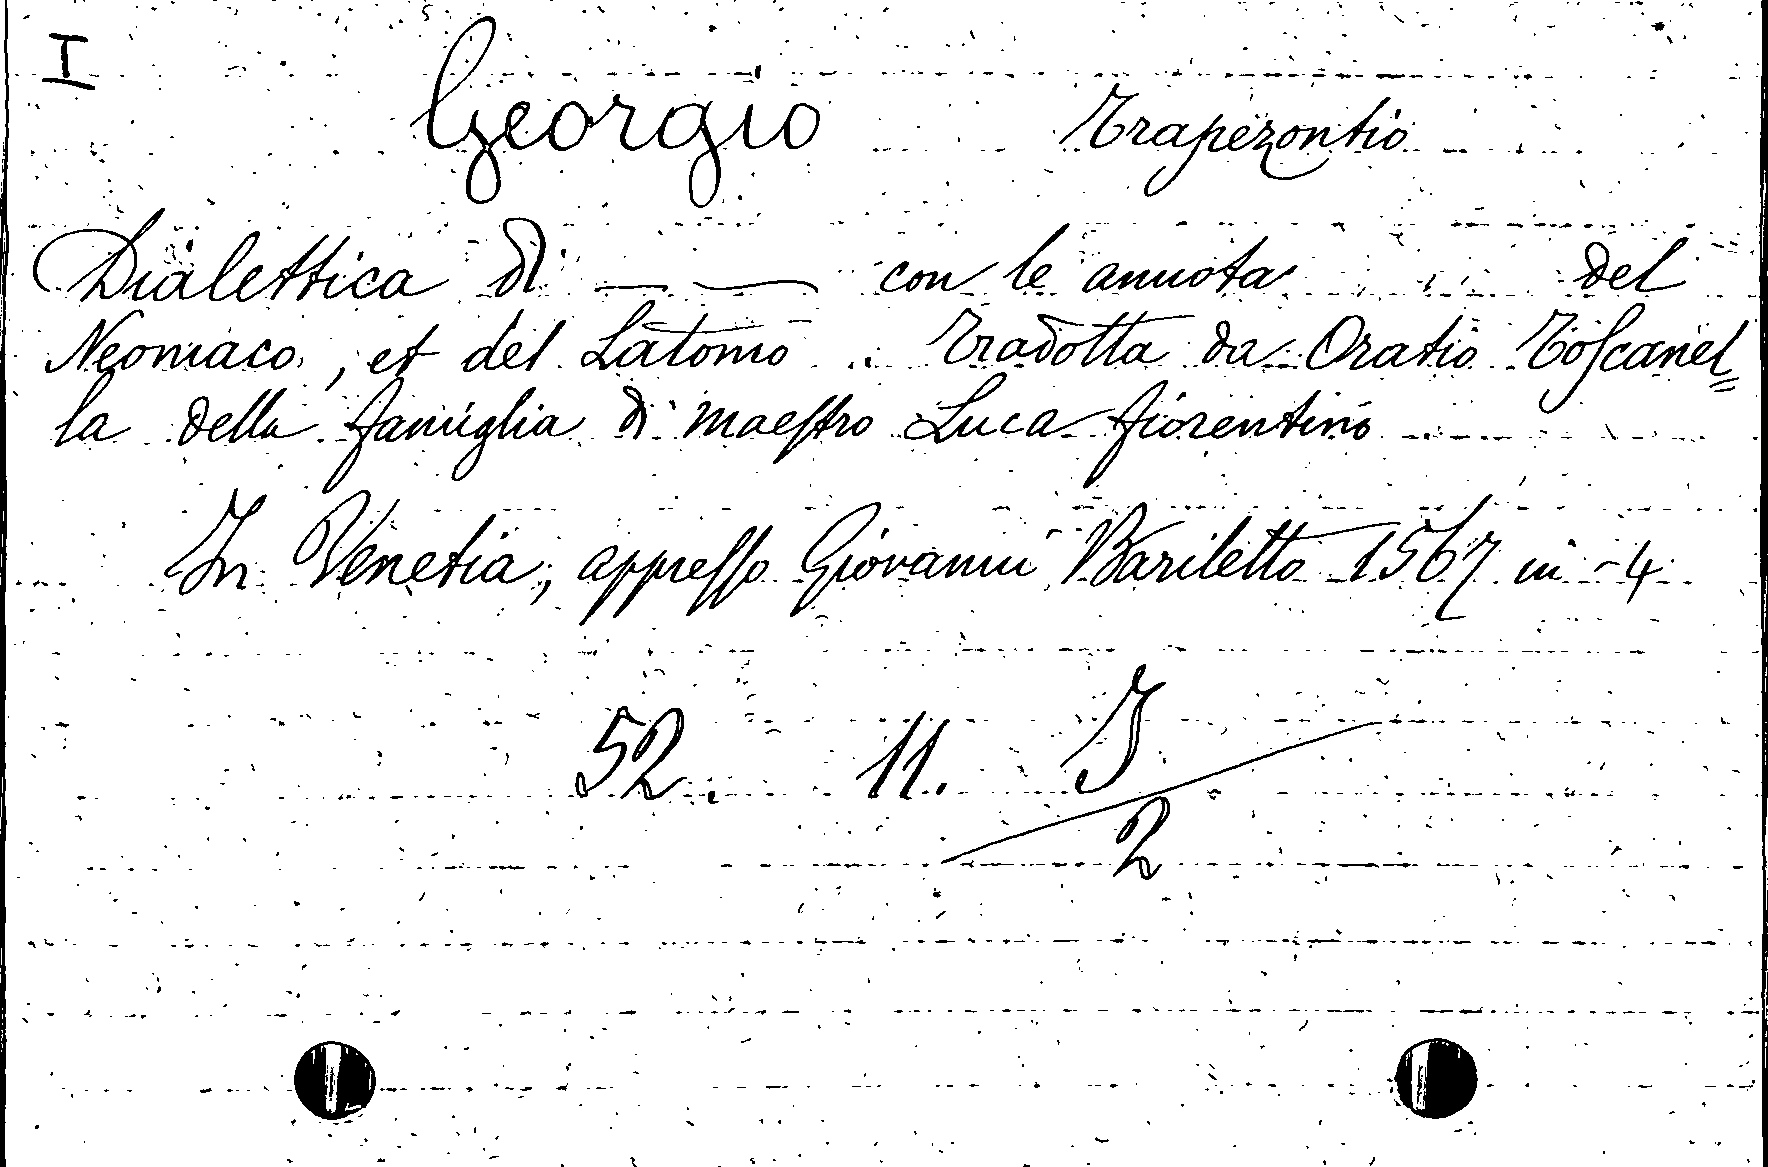 I
Georgio Trapezontio
Dialettica di — — con le annota del
Neomaco, et del Latomo. Tradotta da Oratio Toſcanel=
la della famiglia di maeſtro Luca fiorentino
In Venetia, appreſſo Giovanni Bariletto 1567 in-4
52. 11. J
2